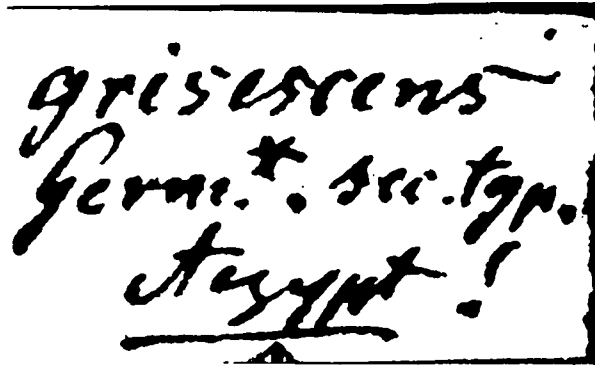 grisescens
Germ.*. sec. typ.
Aegypt.!